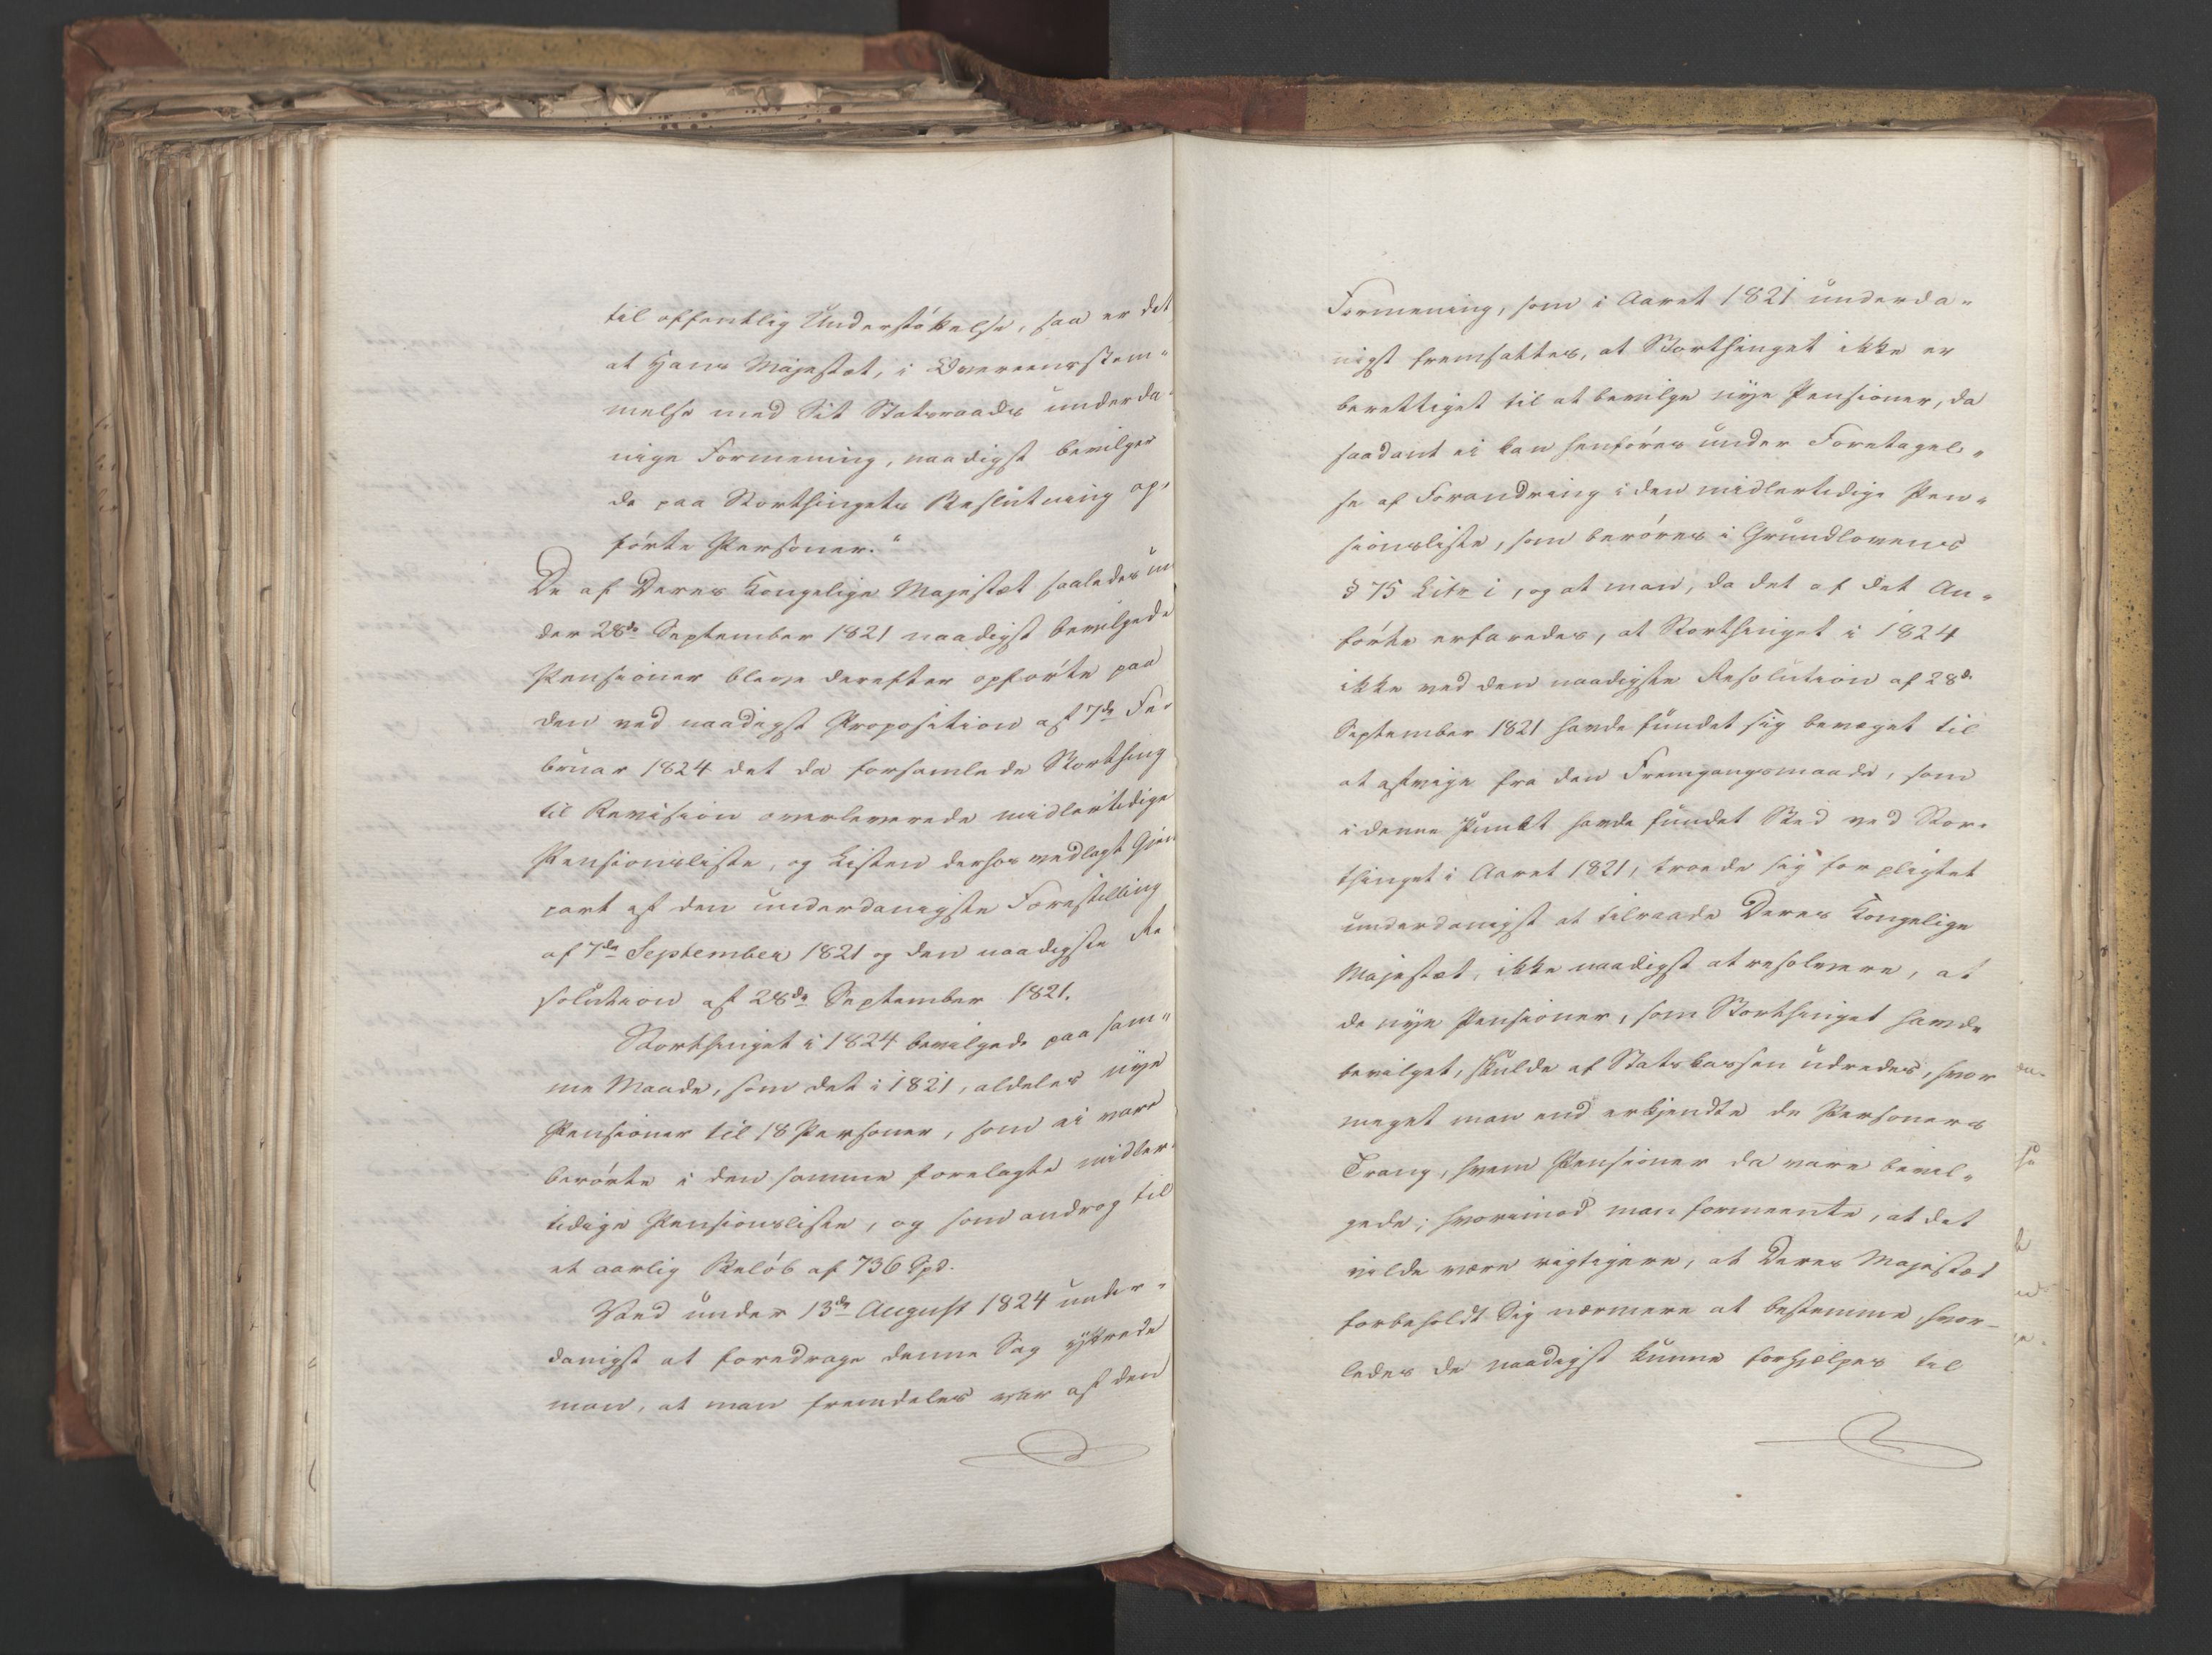 til offentlig Understøttelse, saa er det
at Hans Majestæt, i Overeensstem-
melse med Sit Statsraads underda-
nige Formening, naadigst bevilger
de paa Storthingets Beslutning op-
førte Personer."
De af Deres Kongelige Majestæt saaledes un
der 28de September 1821 naadigst bevilgede
Pensioner bleve derefter opførte paa
den ved naadigst Proposition af 7de Fe-
bruar 1824 det da forsamlede Storthing
til Revision overleverede midlertidige
Pensionsliste, og Listen derhos vedlagt Gjen
part af den underdanigste Forestilling
af 7de September 1821 og den naadigste Re
solution af 28de September 1821.
Storthinget i 1824 bevilgede paa sam-
me Maade, som det i 1821, aldeles nye
Pensioner til 18 Personer, som ei vare
berørte i den samme forelagte midler-
tidige Pensionsliste, og som androg til
et aarlig Beløb af 736 Spd.
Ved under 13de August 1824 under-
danigst at foredrage denne Sag yttrede
man, at man fremdeles var af den
Formening, som i Aaret 1821 underda-
nigst fremsattes, at Storthinget ikke er
berettiget til at bevilge nye Pensioner, da
saadant ei kan henføres under Foretagel-
se af Forandring i den midlertidige Pen-
sionsliste, som berøres i Grundlovens
§ 75 Litr i, og at man, da det af det An-
førte erfaredes, at Storthinget i 1824
ikke ved den naadigste Resolution af 28de
September 1821 havde fundet sig bevæget til
at afvige fra den Fremgangsmaade, som
i denne Punkt havde fundet Sted ved Stor-
thinget i Aaret 1821, troede sig forpligtet
underdanigst at tilraade Deres Kongelige
Majestæt, ikke naadigst at resolvere, at
de nye Pensioner, som Storthinget havde
bevilget, skulde af Statskassen udredes, hvor
meget man end erkjendte de Personers
Trang, hvem Pensioner da vare bevil-
gede; hvorimod man formeente, at det
vilde være rigtigere, at Deres Majestæt
forbeholdt Sig nærmere at bestemme, hvor-
ledes de naadigst kunne forhjælpes til